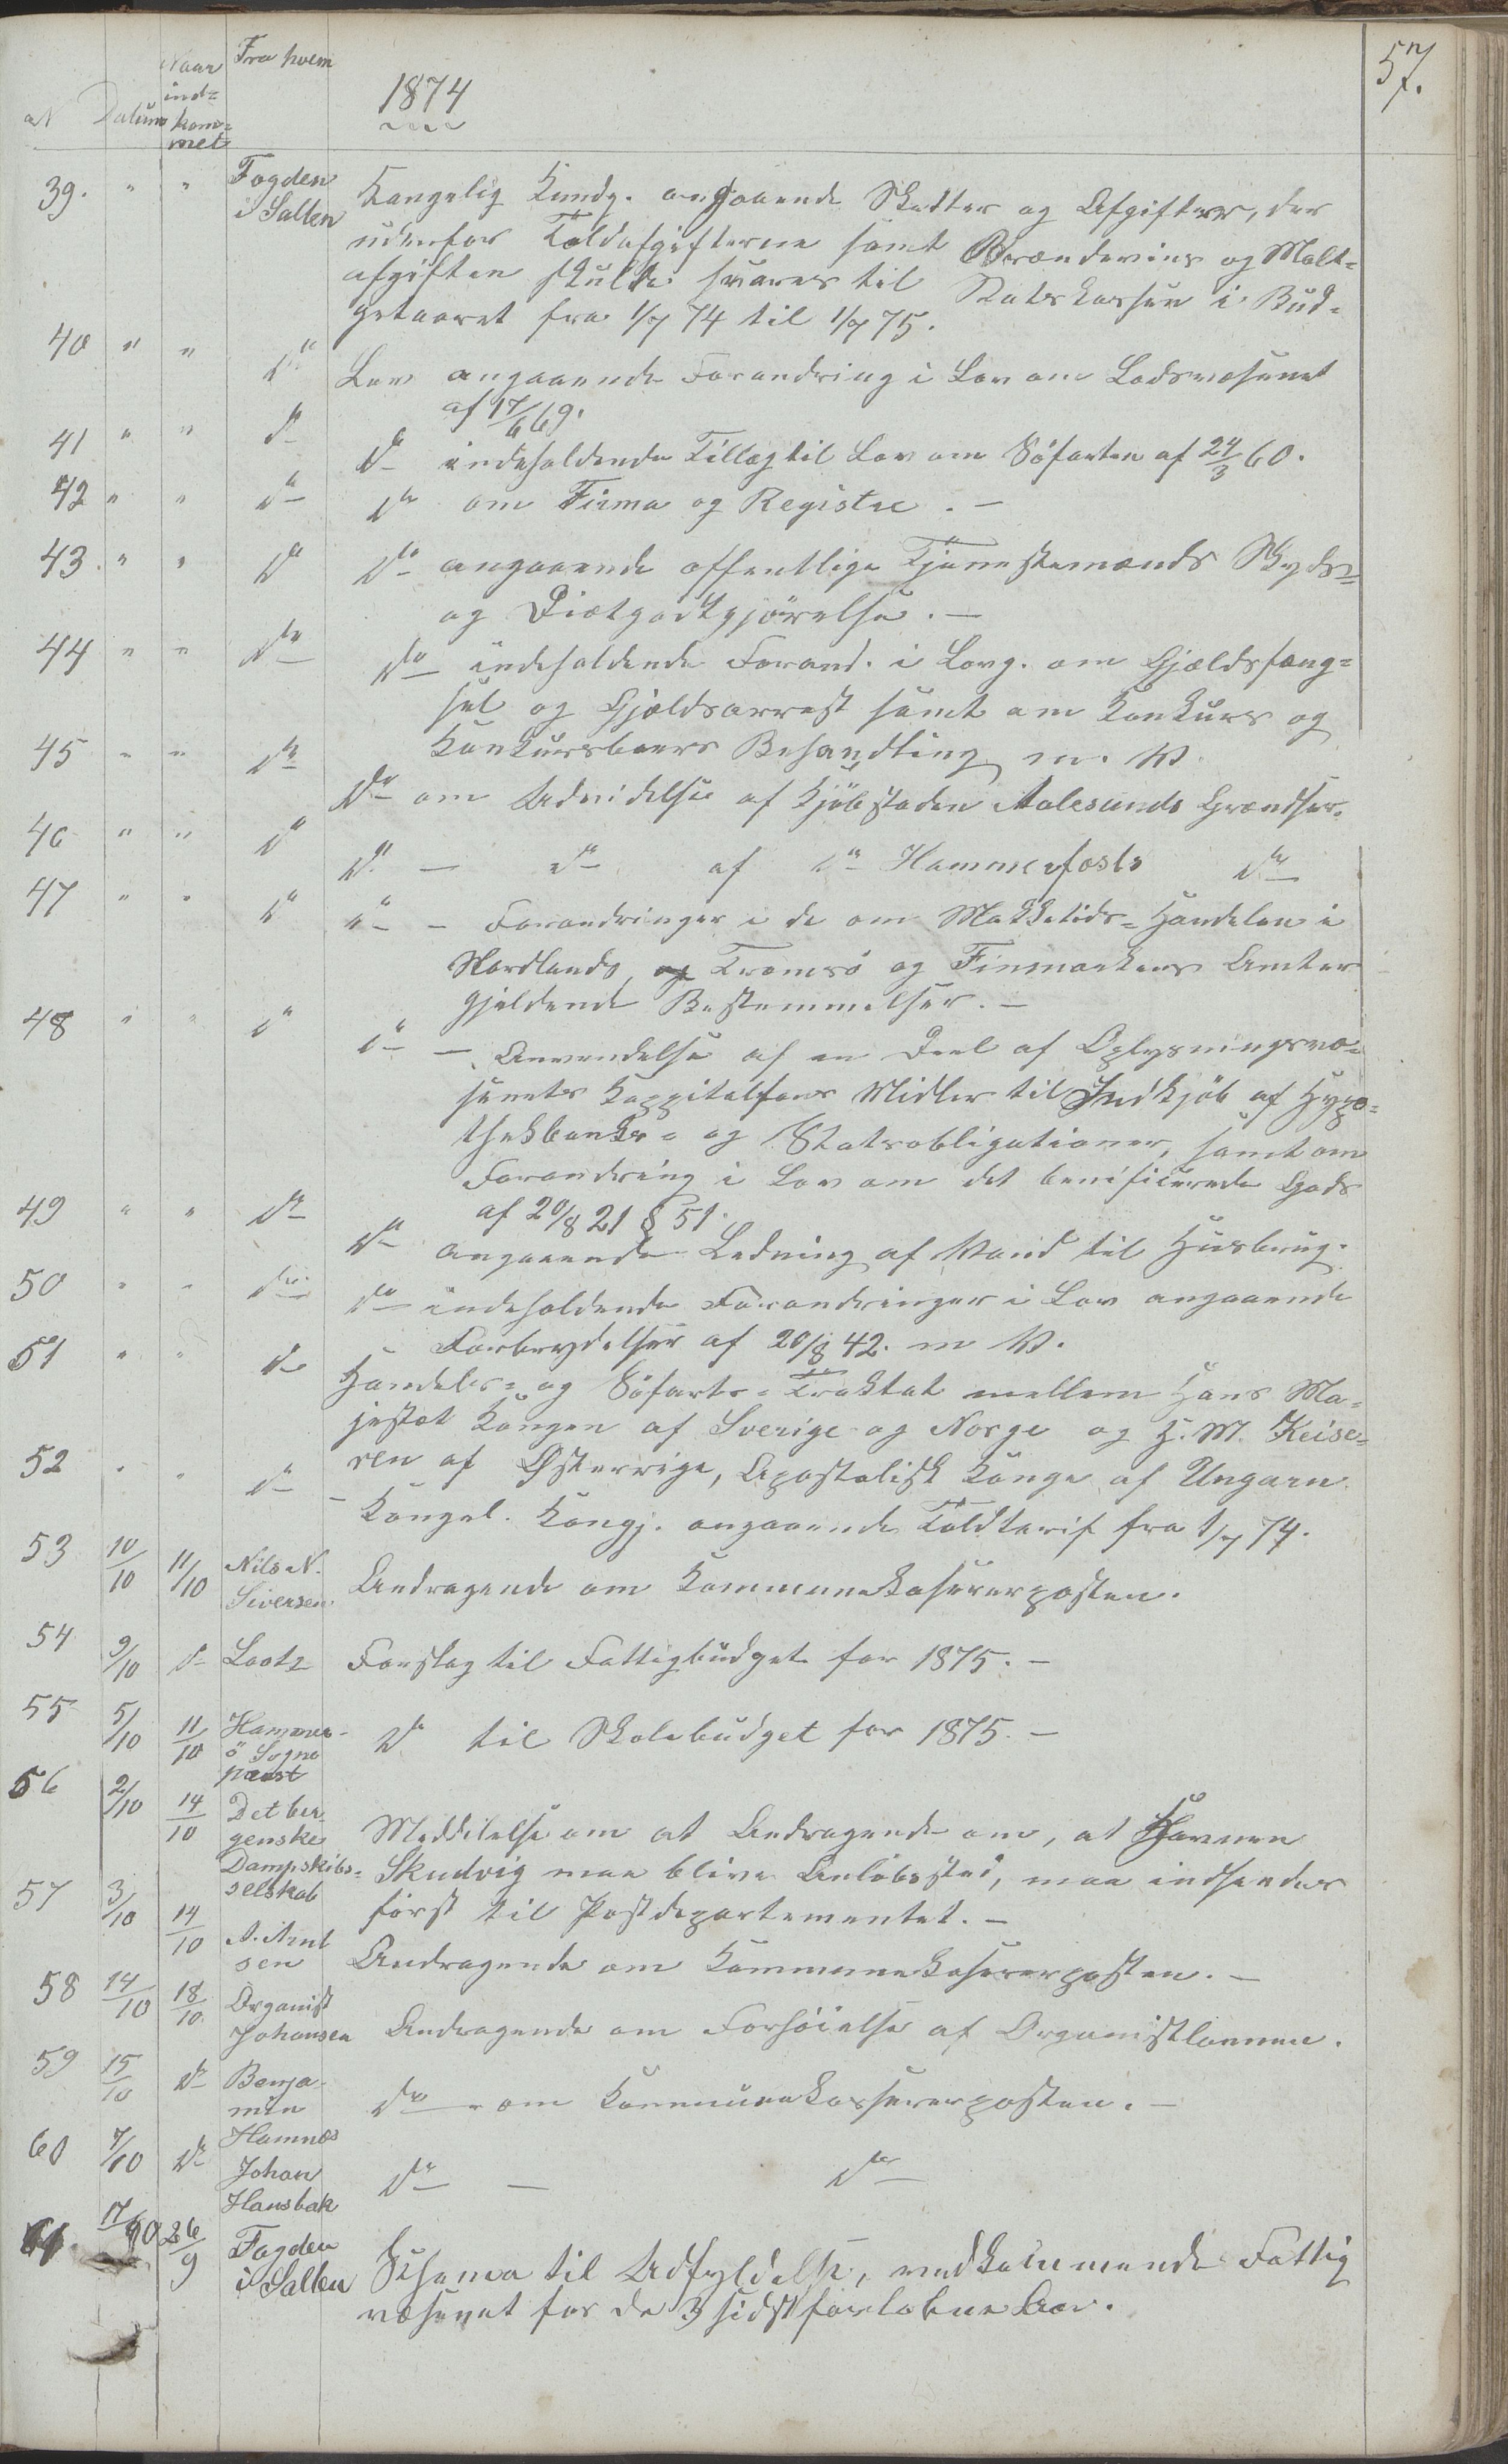 57.
Fra hvem
Naar
ind-
1874
N Datum kom-
met
39. " " Fogden Kongelig Kundg. angaaende Skatter og Afgifter, der
i Salten udenfor Toldafgifterne samt Brændevins og Malt-
afgiften skulle svares til Statskassen i Bud-
getaaret fra 1/7 74 til 1/7 75.
40 " " Do Lov angaaende Forandring i Lov om Lodsvæsenet
af 17/6 69.
41 " " Do Do indeholdende Tillæg til Lov om Söfarten af 24/3 60.
42 " " Do Do om Firma og Registre. -
43. " " Do Do angaaende offentlige Tjenestemænds Skyds-
og Diætgodtgjörelse. -
44 " " Do Do indeholdende Forand. i Lovg. om Gjældsfæng-
sel og Gjældsarrest samt om Konkurs og
Konkursboers Behandling m. V.
45 " " Do Do om Udvidelse af Kjöbstaden Aalesunds Grændser.
46 " " Do Do - Do af Do Hammerfests Do
47 " " Do Do - Forandringer i de om Markets-Handelen i
Nordlands, og Tromsö og Finmarkens Amter
gjeldende Bestemmelser. -
48 " " Do Do - Anvendelse af en Deel af Oplysningsvæ-
senets Kappitalfons Midler til Indkjöb af Hypo-
thekbanks- og Statsobligationer, samt om
Forandring i Lov om det benificerede Gods
af 20/8 21 § 51.
49 " " Do Do angaaende Ledning af Vand til Husbrug.
50 " " Do Do indeholdende Forandringer i Lov angaaende
Forbrydelser af 20/8 42. m V.
51 " " Do Handels- og Söfarts-Traktat mellem Hans Ma-
jestæt Kongen af Sverige og Norge og H. M. Keise-
ren af Østerrige, Apostolisk Konge af Ungarn
52 " " Do - Kongel. Kongj. angaaende Toldtarif fra 1/7 74.
53 10/10 11/10 Nils N. Andragende om Kommunekasererposten.
Siversen
54 9/10 Do Lootz Forslag til Fattigbudget for 1875. -
55 5/10 11/10 Hammer- Do til Skolebudget for 1875. -
ö Sogne
præst
56 2/10 14/10 Det ber- Meddelelse om at Andragende om, at Havnen
genske Skudvig maa blive Anlöbssted, maa indsendes
Dampskibs- först til Postdepartementet. -
selskab
57 3/10 14/10 A. Arnt Andragende om Kommunekasererposten. -
sen
58 14/10 18/10 Organist Andragende om Forhöielse af Organistlönnen.
Johansen
59 15/10 Do Benja- Do - om Kommunekassererposten. -
min
Hamnes
60 7/10 Do Johan Do - Do
Hansbak
61. 17/10 26/9 Fogden Schema til Udfyldelse, vedkommende Fattig
i Salten væsenet for de 3 sidst forløbne Aar.